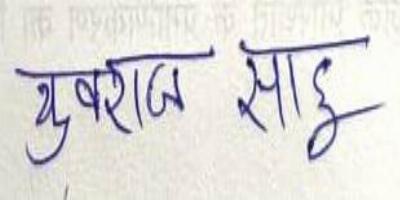 युवराज साहू